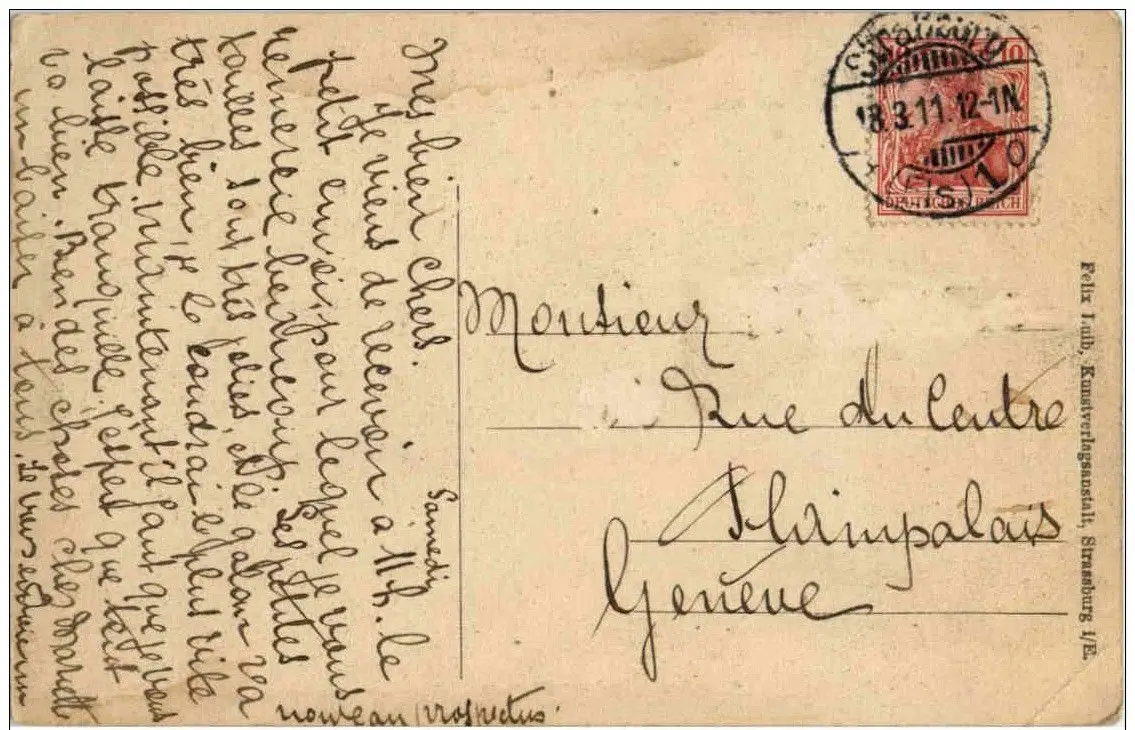 Samedi
Mes bien chers.
Je viens de recevoir à 11 h. le
petit envoi, pour lequel je vous
remercie beaucoup. Les petites
tailles sont très jolies, et le galon va
très bien, je le coudrai le plus vite
possible, maintenant il faut que je vous
laisse tranquille. J'espère que tout
va bien. Bien des choses chez
un baiser à tous. Je vous
nouveau prospectus.
Strassburg
18.3.11.12-1N.
(Els) 1
10
DEUTSCHES REICH
Monsieur
Rue du Centre
Plainpalais
Genève
Felix Luib, Kunstverlagsanstalt, Strassburg i/E.